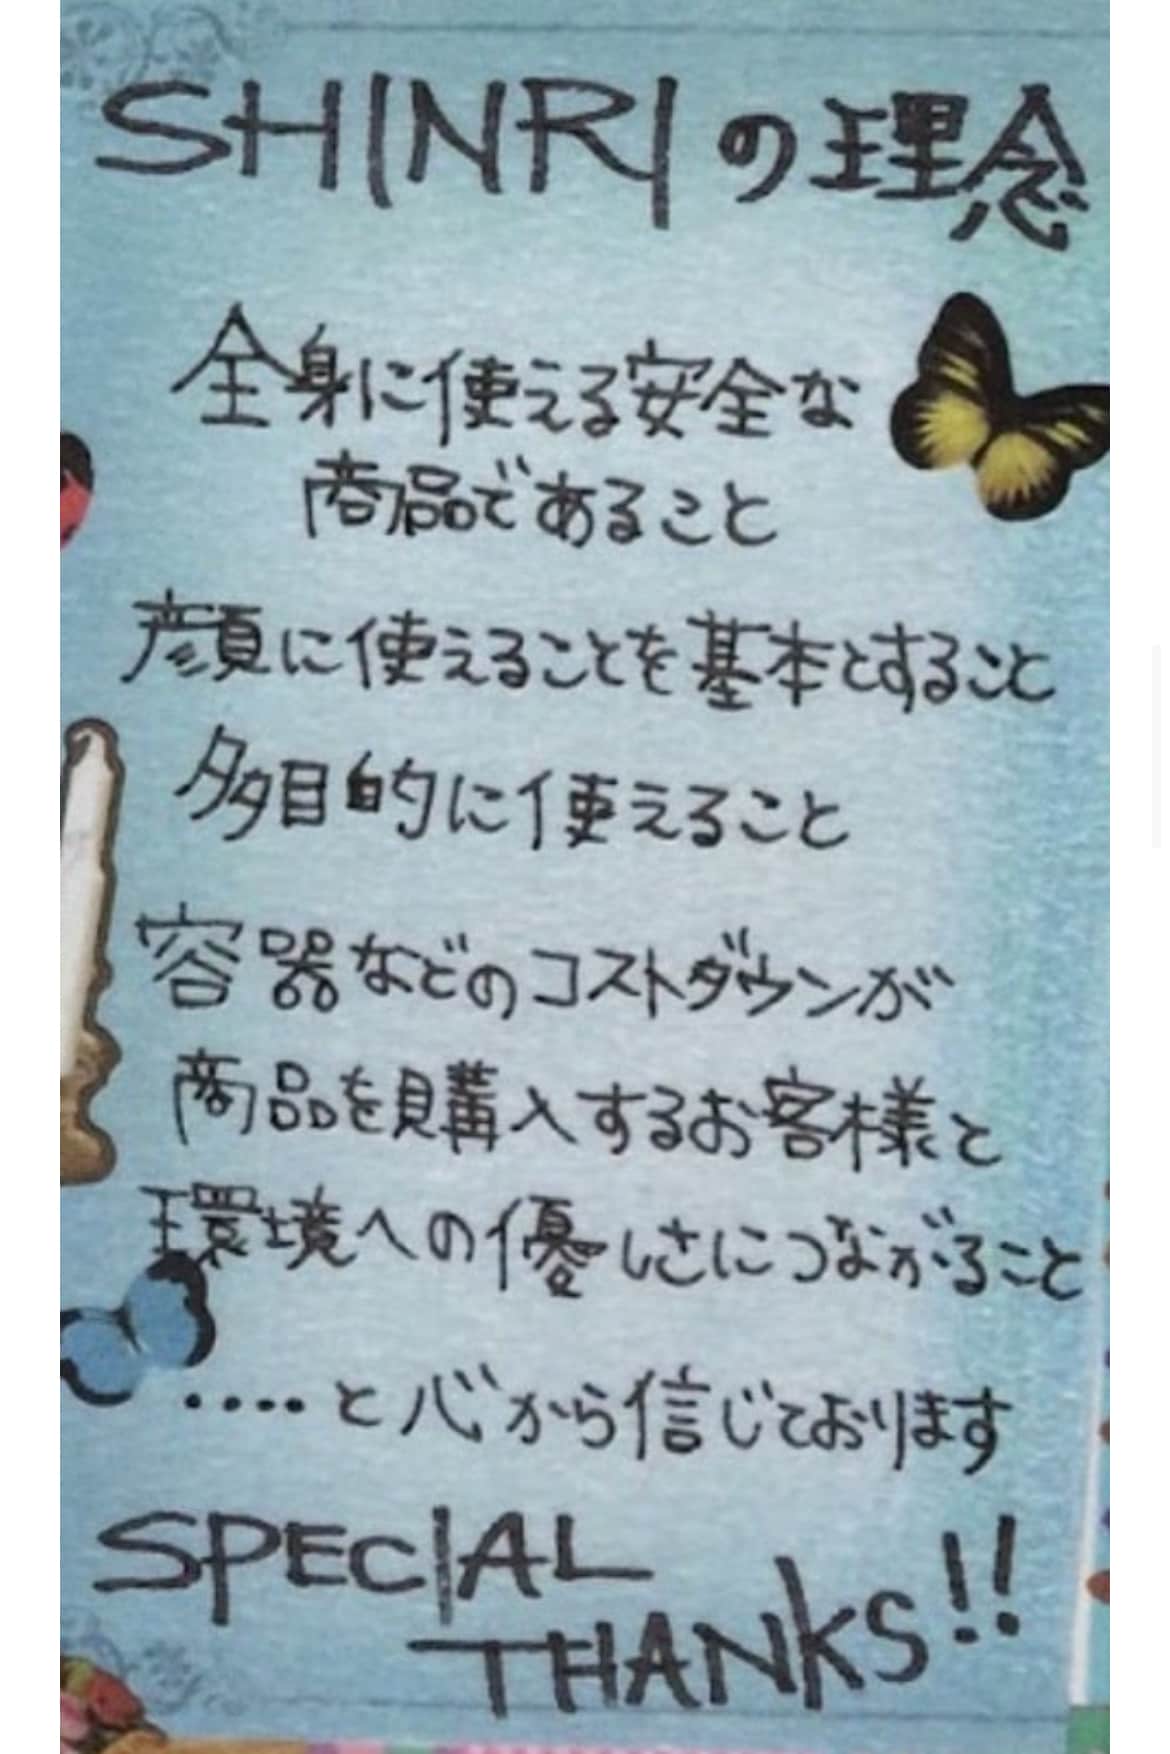 SHINRIの理念
全身に使える安全な
商品であること
顔に使えることを基本とすること
多目的に使えること
容器などのコストダウンが
商品を購入するお客様と
環境への優しさにつながること
....と心から信じております
SPECIAL
THANKS!!